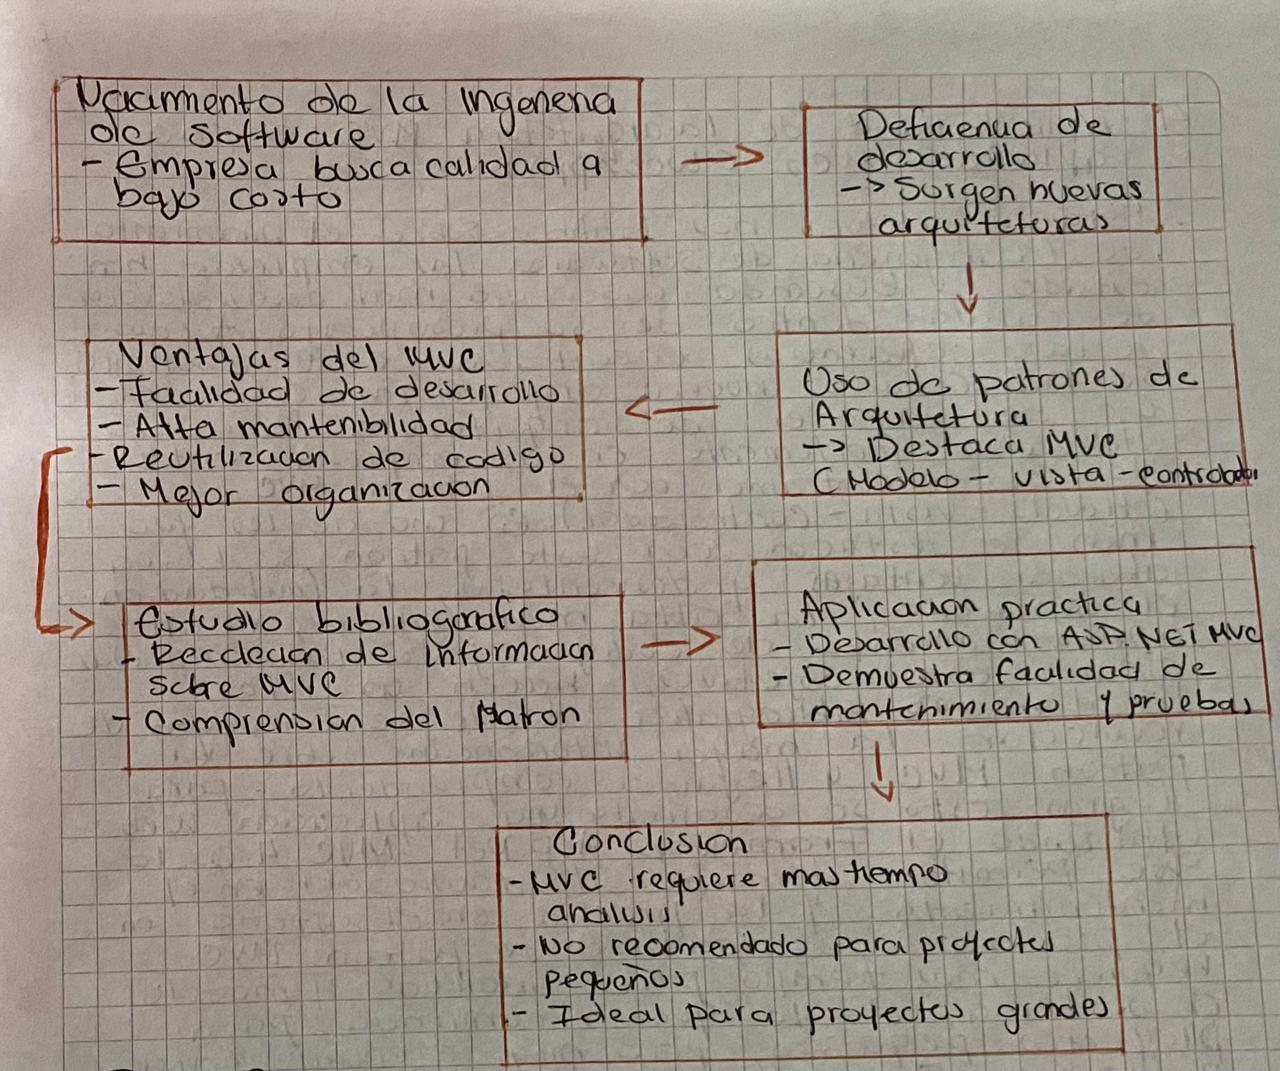 Nacimiento de la Ingenieria
de Software
- Empresa busca calidad a
bajo costo
Deficiencia de
desarrollo
-> Surgen nuevas
arquitecturas
Uso de patrones de
Arquitetura
-> Destaca MVC
(Modelo - vista - controlador
Ventajas del MVC
- Facilidad de desarrollo
- Alta mantenibilidad
- Reutilizacion de codigo
- Mejor organizacion
Estudio bibliogorafico
- Recoleccion de informacion
sobre MVC
- Comprension del Patron
Aplicacion practica
- Desarrollo con ASP.NET MVC
- Demuestra facilidad de
mantenimiento y pruebas
Conclusion
- MVC requiere mas tiempo
analisis
- No recomendado para proyectos
pequeños
- Ideal para proyectos grandes